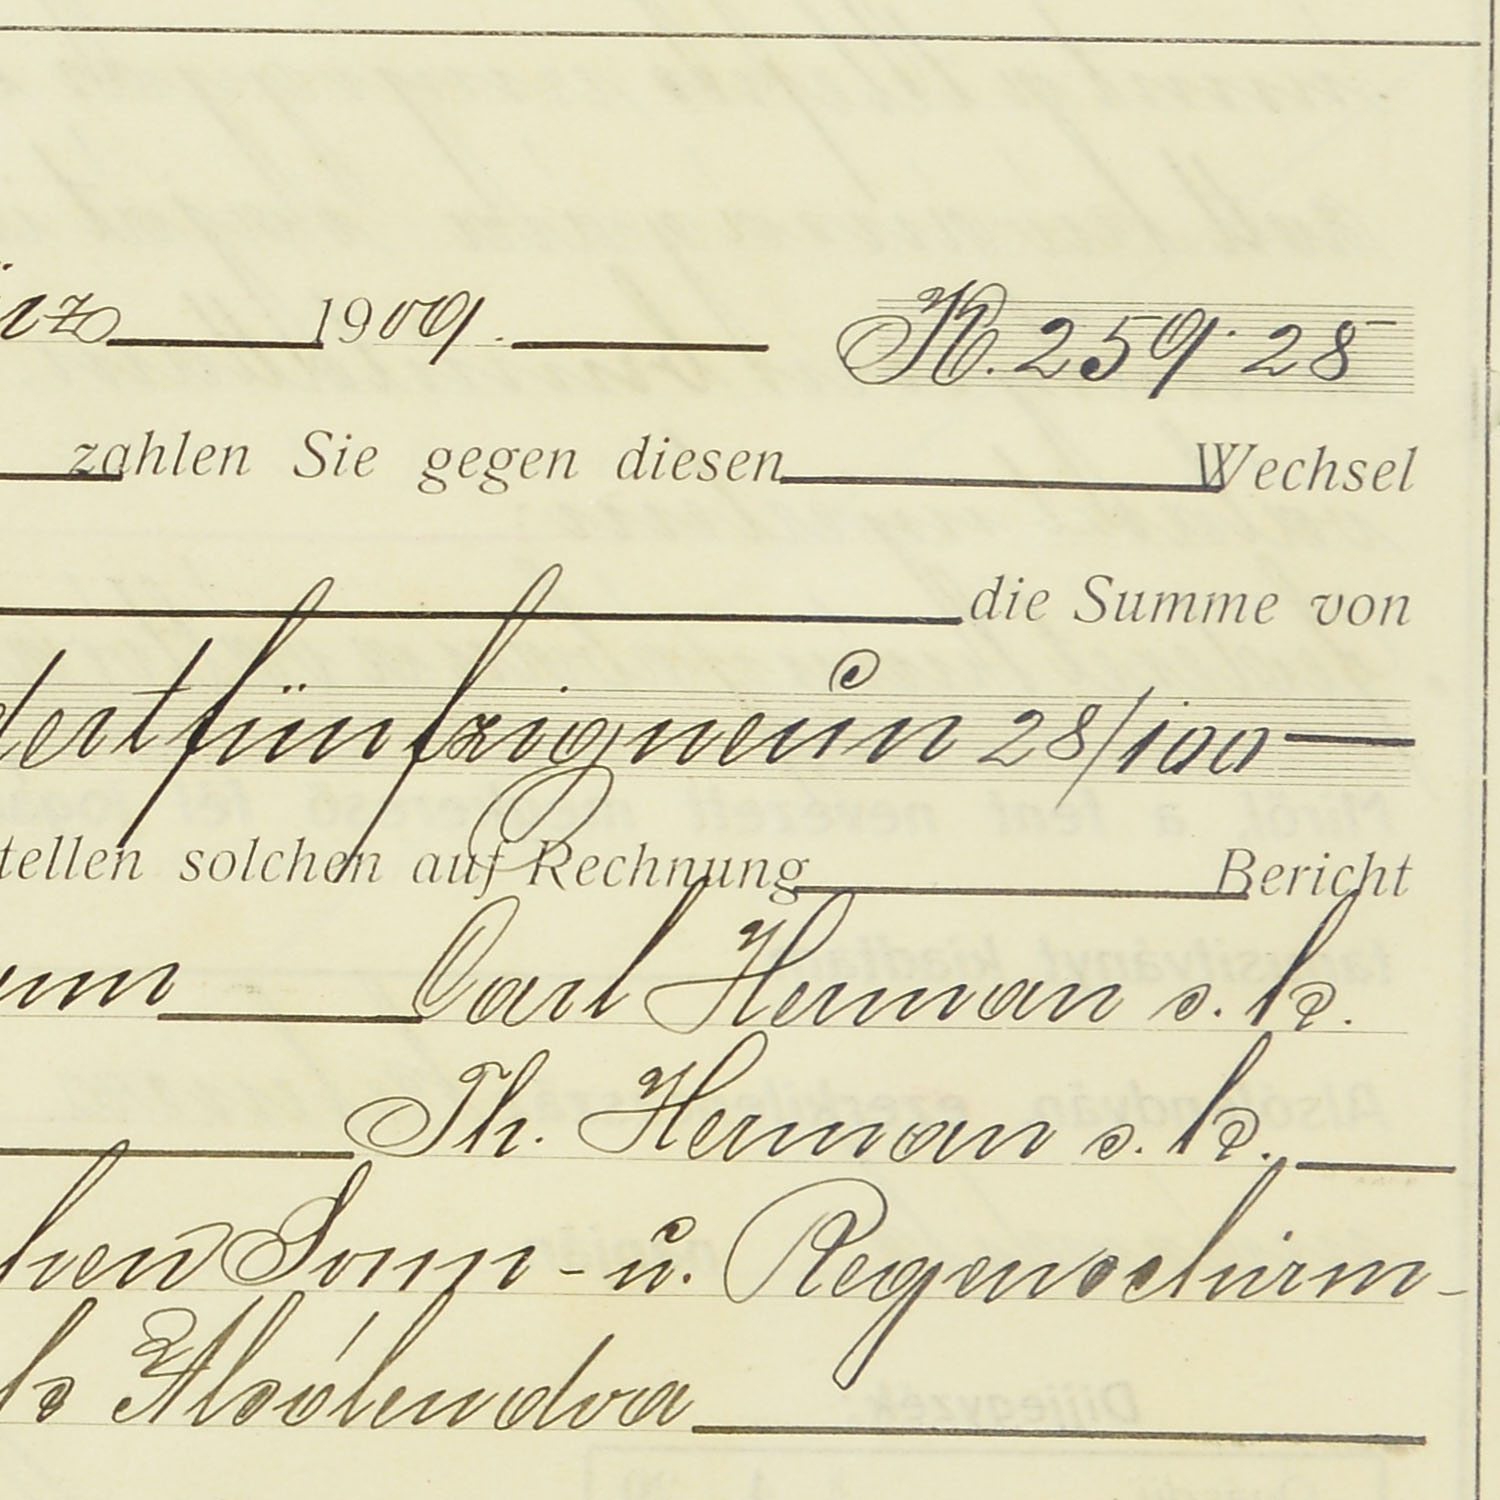 ärz 1909. K. 259·28
zahlen Sie gegen diesen Wechsel
die Summe von
dertfünfzigneun 28/100
tellen solchen auf Rechnung Bericht
Carl Herman s. k.
Th. Herman s. k.
Sonn- u. Regenschirm-
Alsólendva